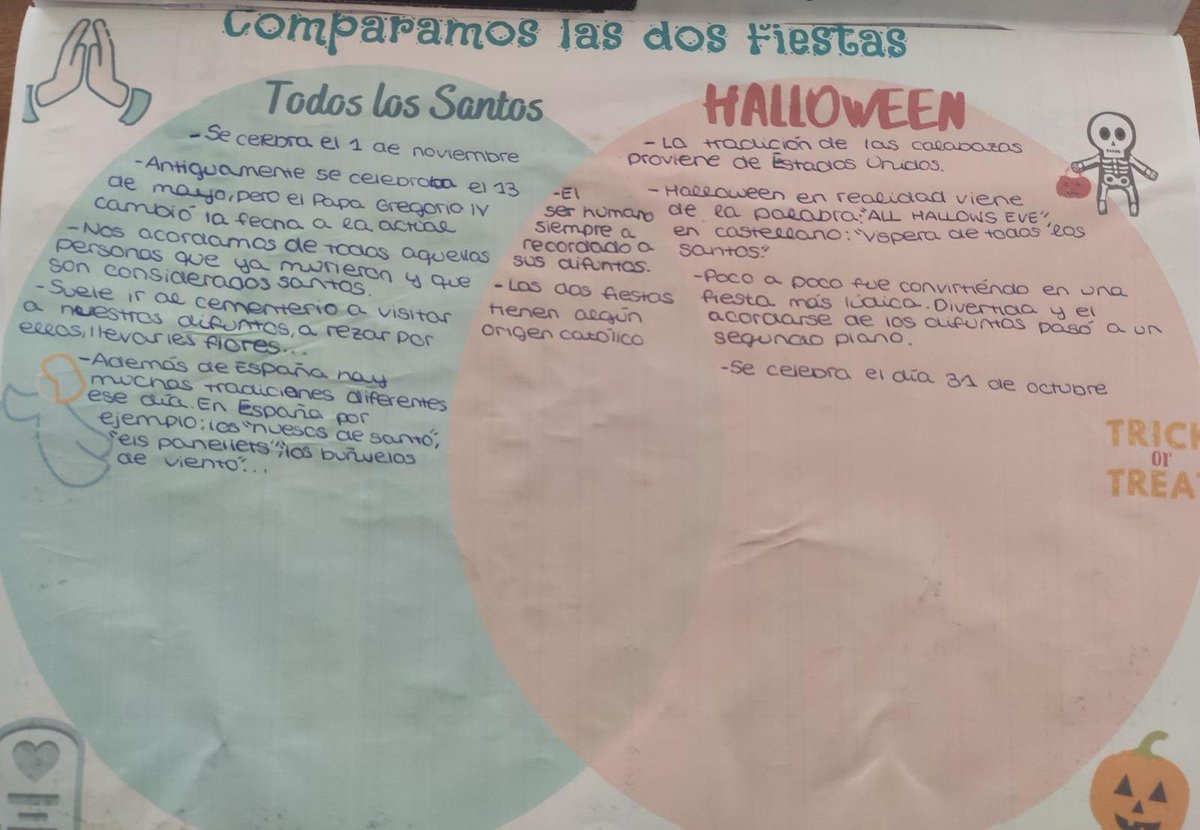 Comparamos las dos fiestas
Todos los Santos
- Se celebra el 1 de noviembre
- Antiguamente se celebraba el 13
de mayo, pero el Papa Gregorio IV
cambió la fecha a la actual
- Nos acordamos de todos aquellas
personas que ya murieron y que
son considerados santos.
- Suele ir al cementerio a visitar
a nuestros difuntos, a rezar por
ellos, llevarles flores...
- Además de España hay
muchas tradiciones diferentes
ese día. En España por
ejemplo: los "huesos de santo",
"els panellets", "los buñuelos
de viento"...
- El
ser humano
siempre a
recordado a
sus difuntos.
- Las dos fiestas
tienen algún
origen católico
HALLOWEEN
- La tradición de las calabazas
proviene de Estados Unidos.
- Halloween en realidad viene
de la palabra: "ALL HALLOWS EVE",
en castellano: "Vispera de todos los
santos."
- Poco a poco fue convirtiéndo en una
fiesta más lúdica. Divertida y el
acordarse de los difuntos pasó a un
segundo plano.
- Se celebra el día 31 de octubre
TRICK
or
TREA